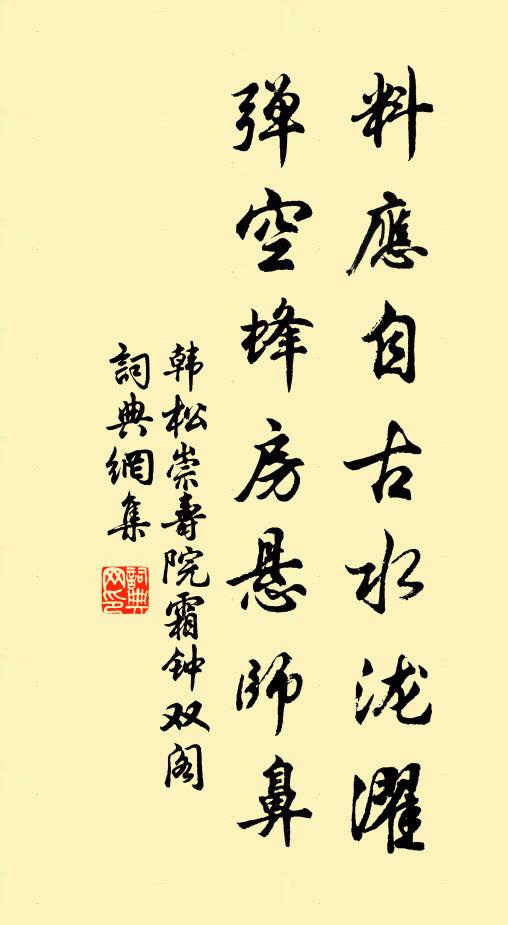 料應自古水泷濯
弹空蜂房悬師鼻
韩松崇壽院霜钟双阁
詞典網集
詞典网印